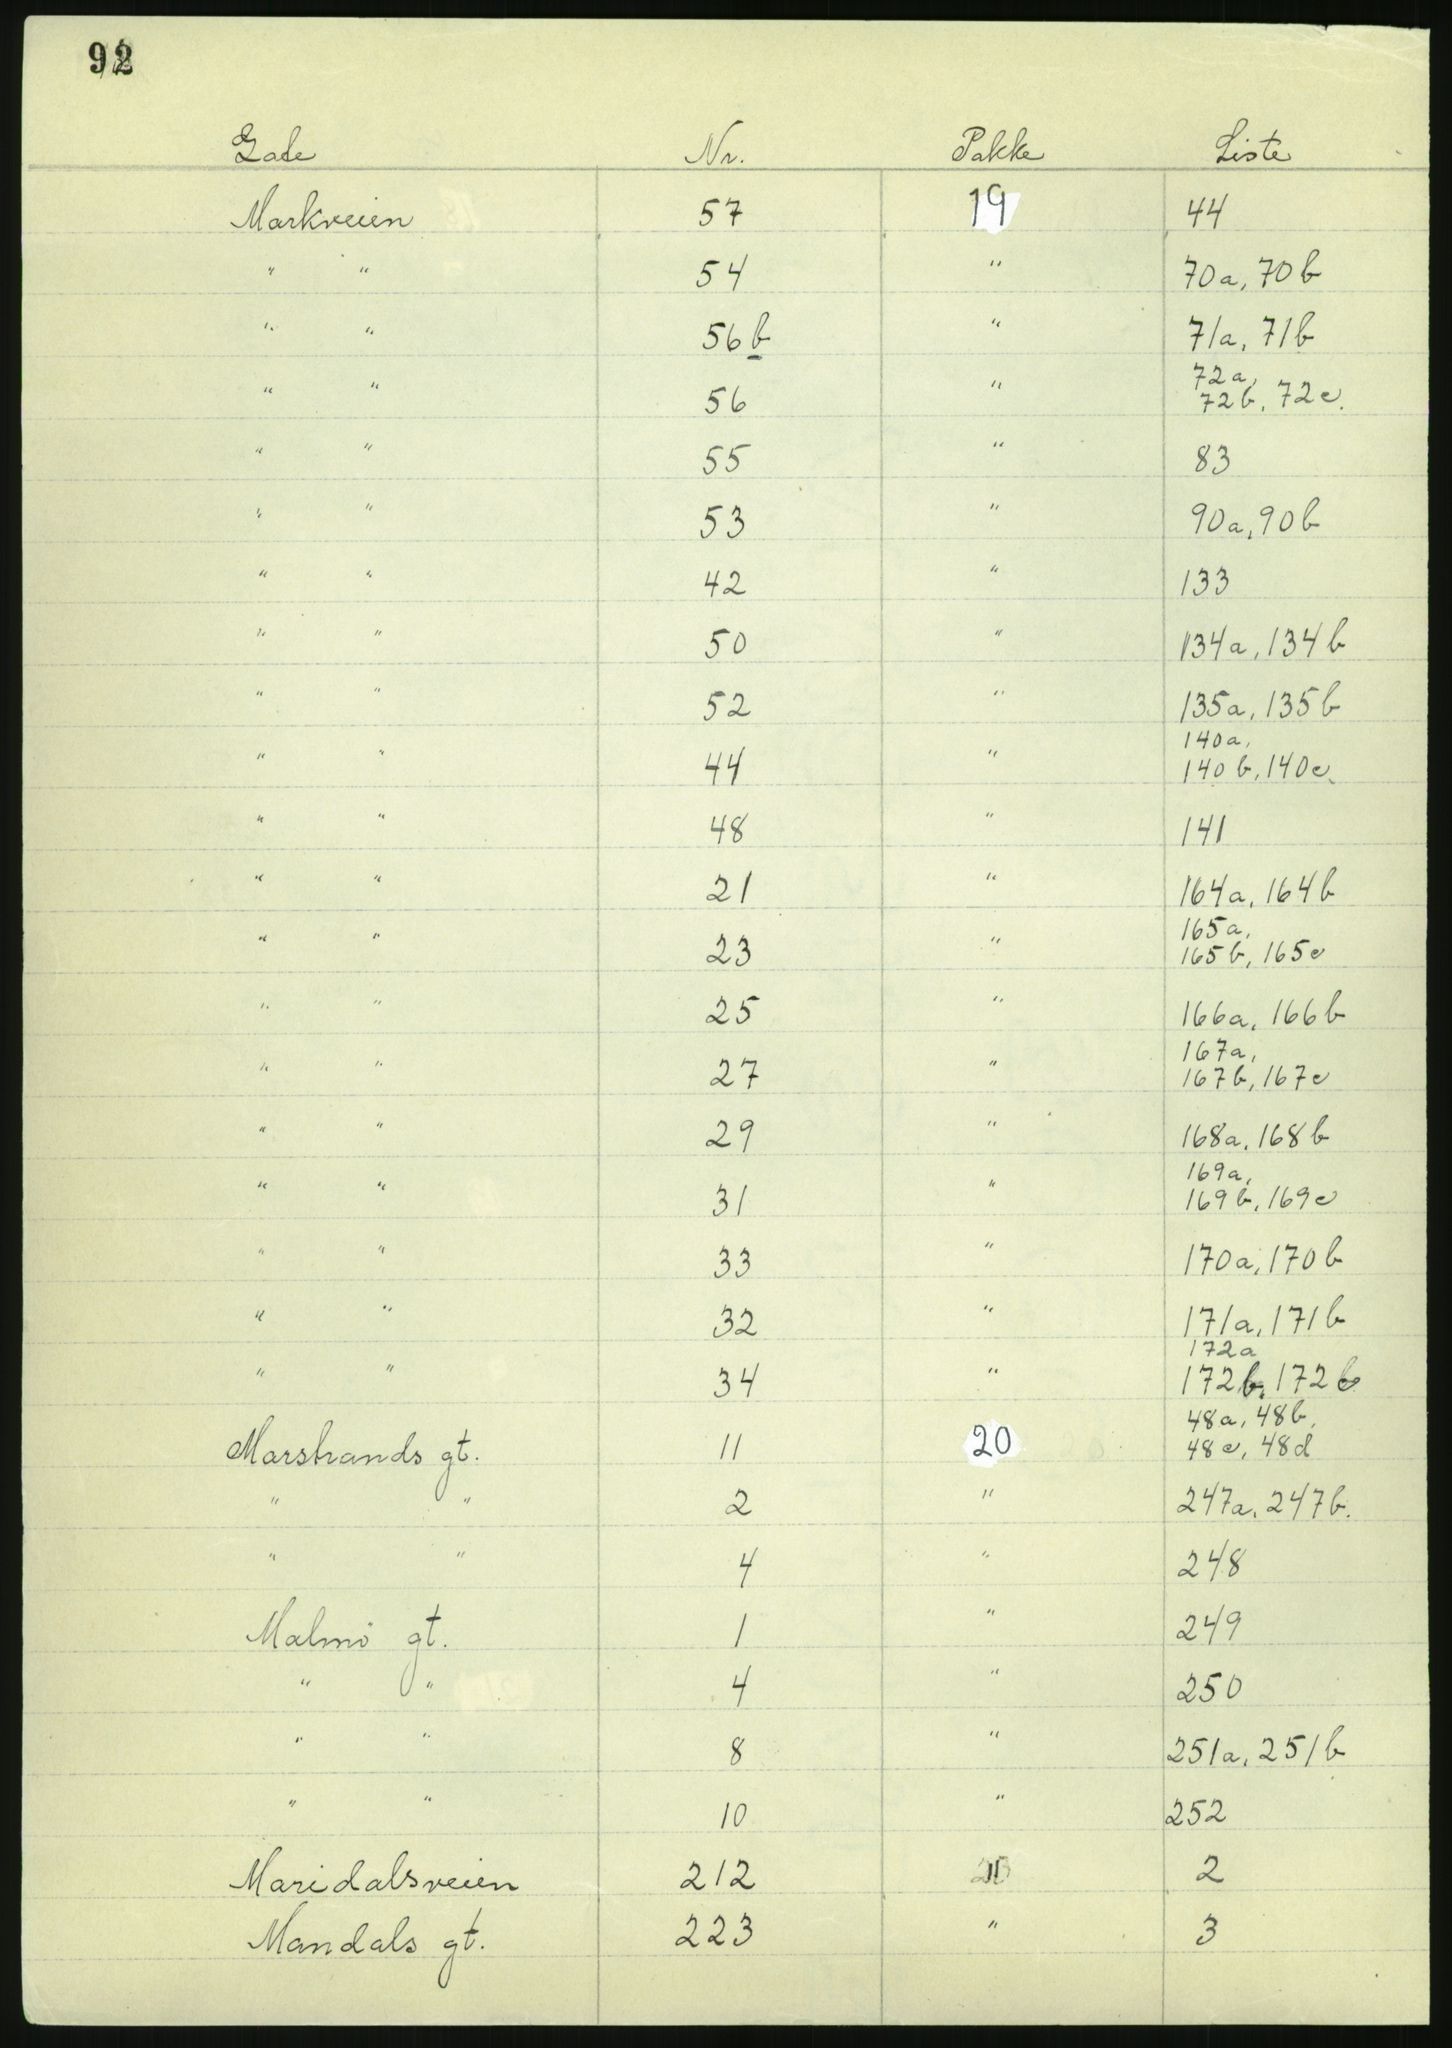 92
Gade Nr. Pakke Liste
Markveien 57 19 44
" " 54 " 70a, 70b
" " 56b " 71a, 71b
" " 56 " 72a,
72b, 72c.
" " 55 " 83
" " 53 " 90a, 90b
" " 42 " 133
" " 50 " 134a, 134b
" " 52 " 135a, 135b
" " 44 " 140a,
140b, 140c.
" " 48 " 141
" " 21 " 164a, 164b
" " 23 " 165a,
165b, 165c
" " 25 " 166a, 166b
" " 27 " 167a,
167b, 167c
" " 29 " 168a, 168b
" " 31 " 169a,
169b, 169c
" " 33 " 170a, 170b
" " 32 " 171a, 171b
" " 34 " 172a
172b, 172c
Marstrands gt. 11 20 48a, 48b,
48c, 48d
" " 2 " 247a, 247b.
" " 4 " 248
Malmö gt. 1 " 249
" " 4 " 250
" " 8 " 251a, 251b
" " 10 " 252
Maridalsveien 212 2
Mandals gt. 223 " 3